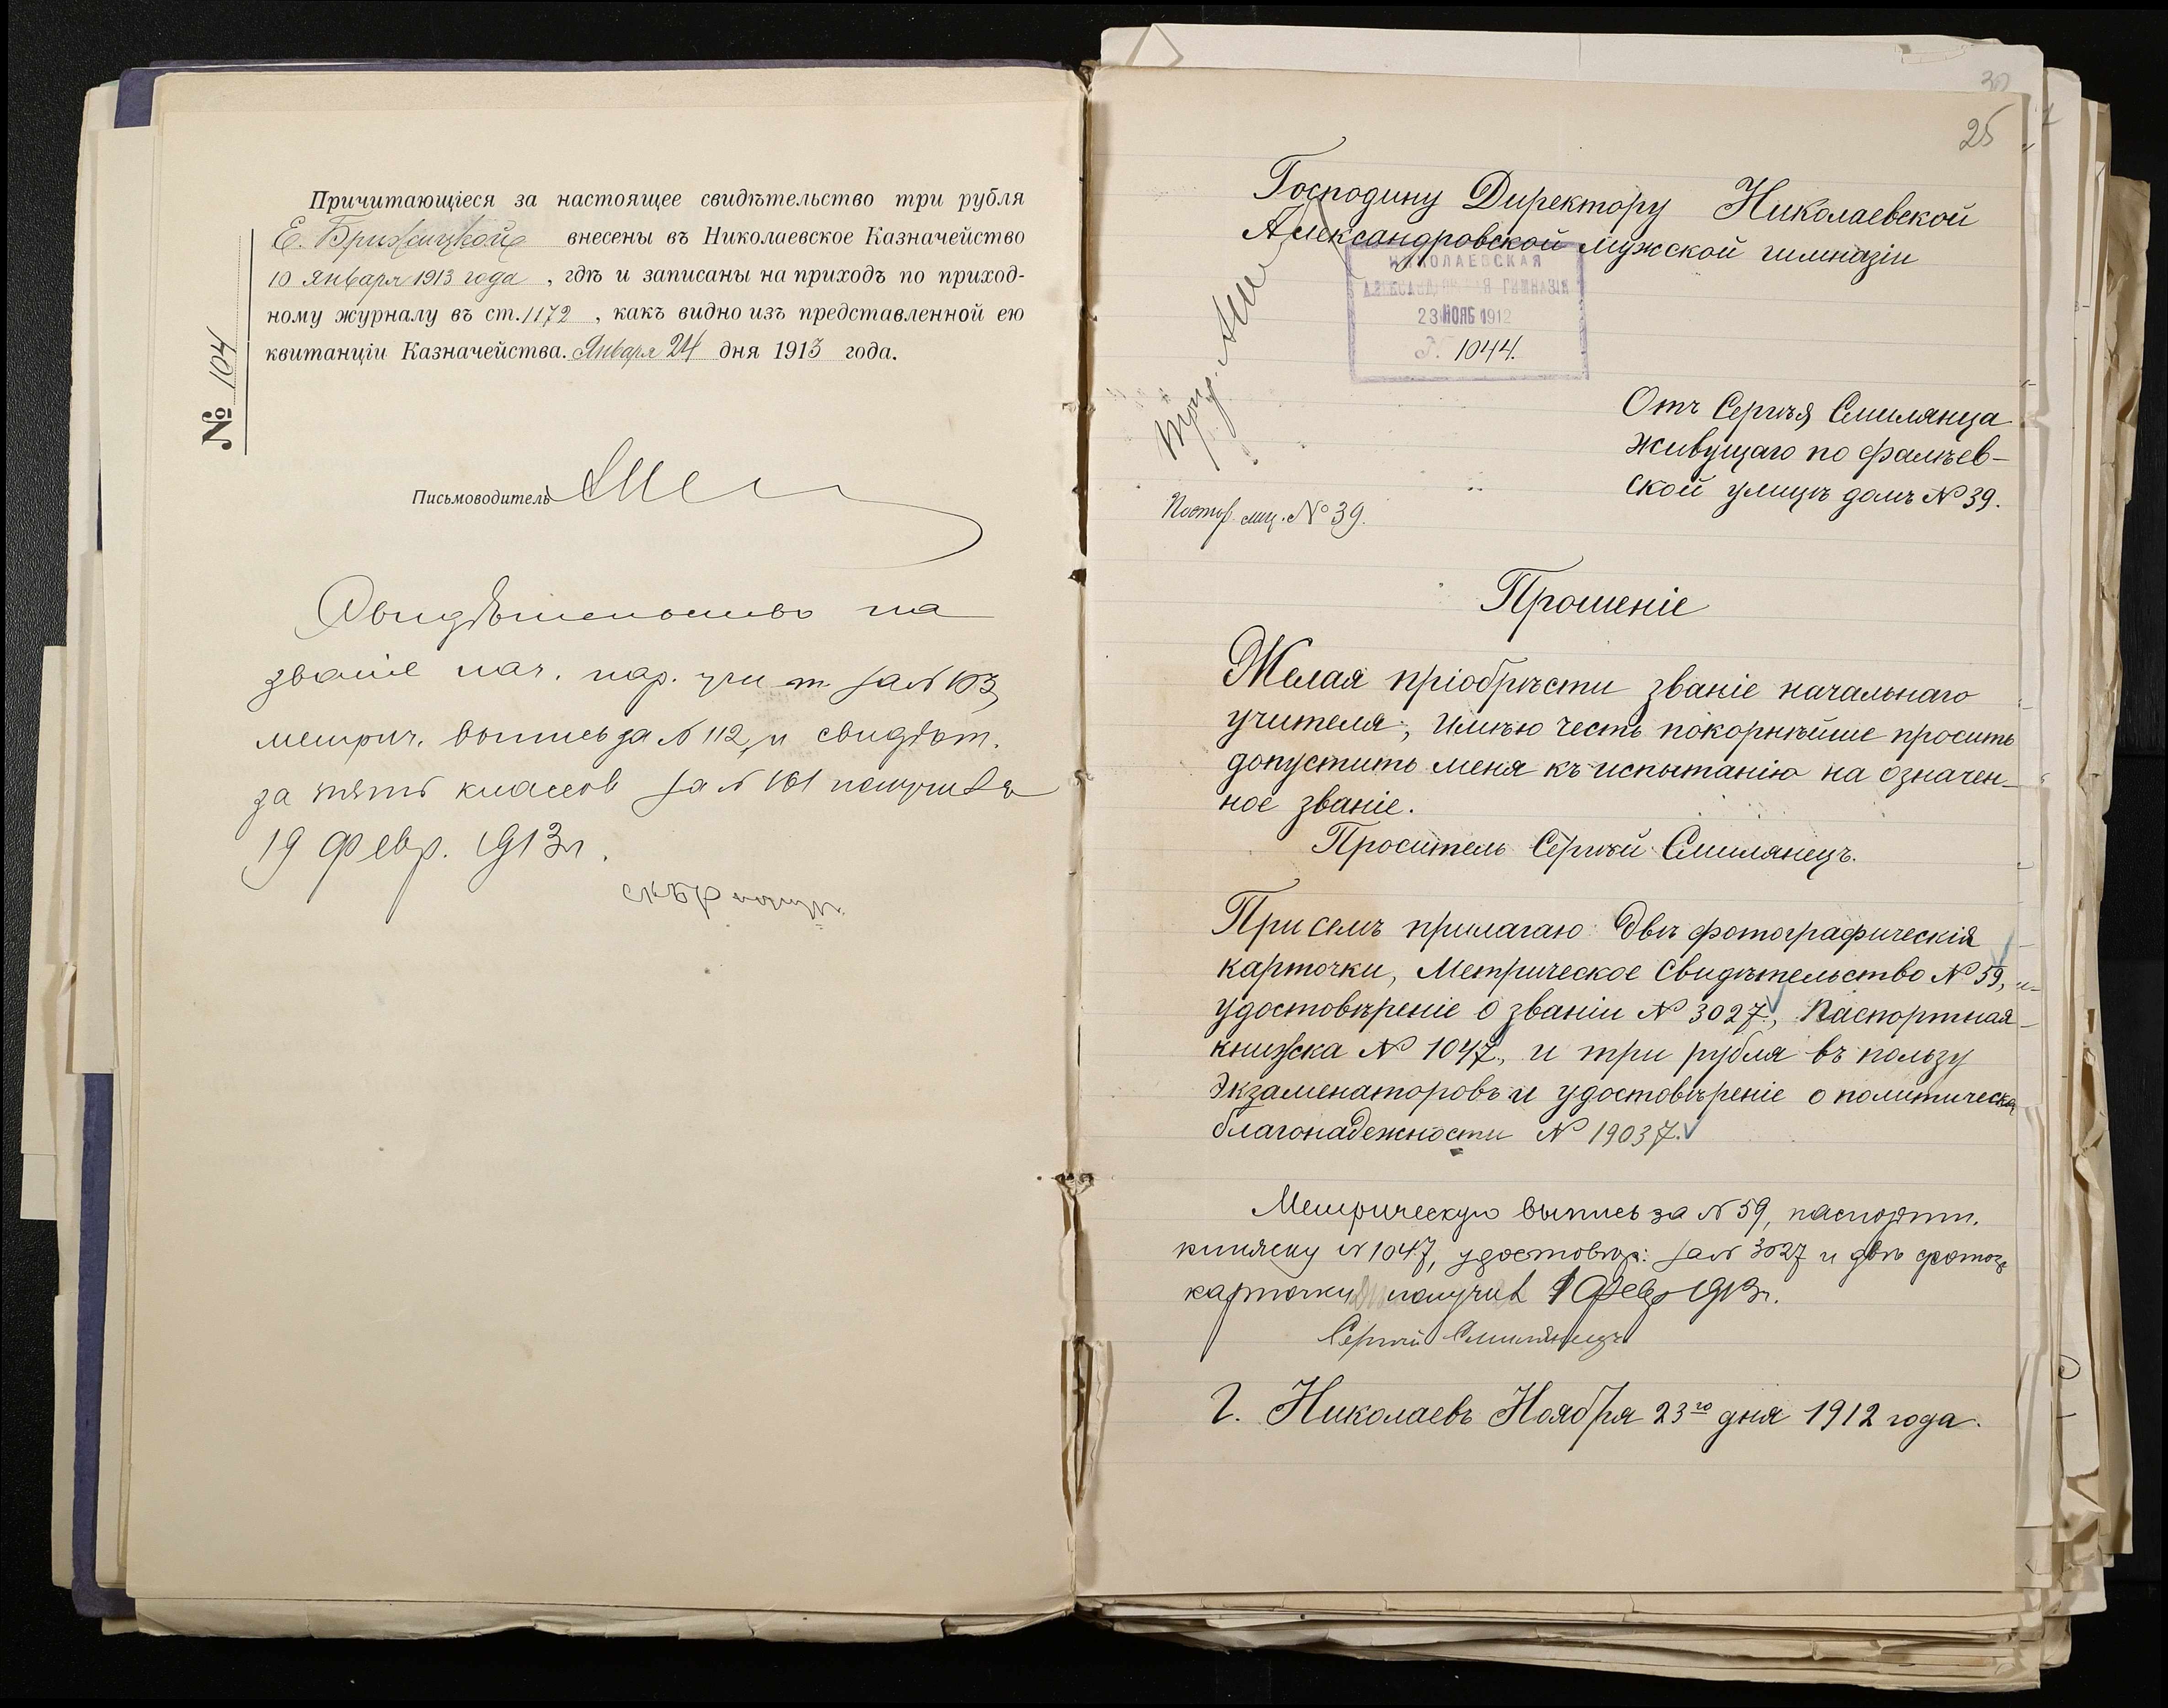 Причитающіеся за настоящее свидѣтельство три рубля
Е. Брижицкой внесены въ Николаевское Казначейство
10 января 1913 года, гдѣ и записаны на приходъ по приход-
ному журналу въ ст. 1172, какъ видно изъ представленной ею
квитанціи Казначейства. Января 24 дня 1913 года.
№ 104
Письмоводитель
Свидѣтельство на
званіе нач. нар. учит. за №103,
метрич. выпись за № 112, и свидѣт.
за пять классов за № 161 получила
19 февр. 1913 г.
30
25
Господину Директору Николаевской
Александровской мужской гимназіи
НИКОЛАЕВСКАЯ
АЛЕКСАНДРОВСКАЯ ГИМНАЗІЯ
23 НОЯБ 1912
1044.
Отъ Сергѣя Смилянца
живущаго по Фалѣев-
ской улицѣ домъ № 39.
№ 39.
Прошеніе
Желая пріобрѣсти званіе начальнаго
учителя, имѣю честь покорнѣйше просить
допустить меня къ испытанію на означен-
ное званіе.
Проситель Сергѣй Смилянецъ.
При семъ прилагаю двѣ фотографическія
карточки, Метрическое Свидѣтельство № 59,
удостовѣреніе о званіи № 3027, Паспортная
книжка № 1047, и три рубля въ пользу
Экзаменаторовъ и удостовѣреніе о политическ
благонадежности № 19037.
Метрическую выпись за № 59, паспортн.
книжку № 1047, удостовѣр. за № 3027 и двѣ фотогр
карточки получил 9 Февр 1913 г.
Сергѣй Смилянецъ
Г. Николаевъ Ноября 23го дня 1912 года.